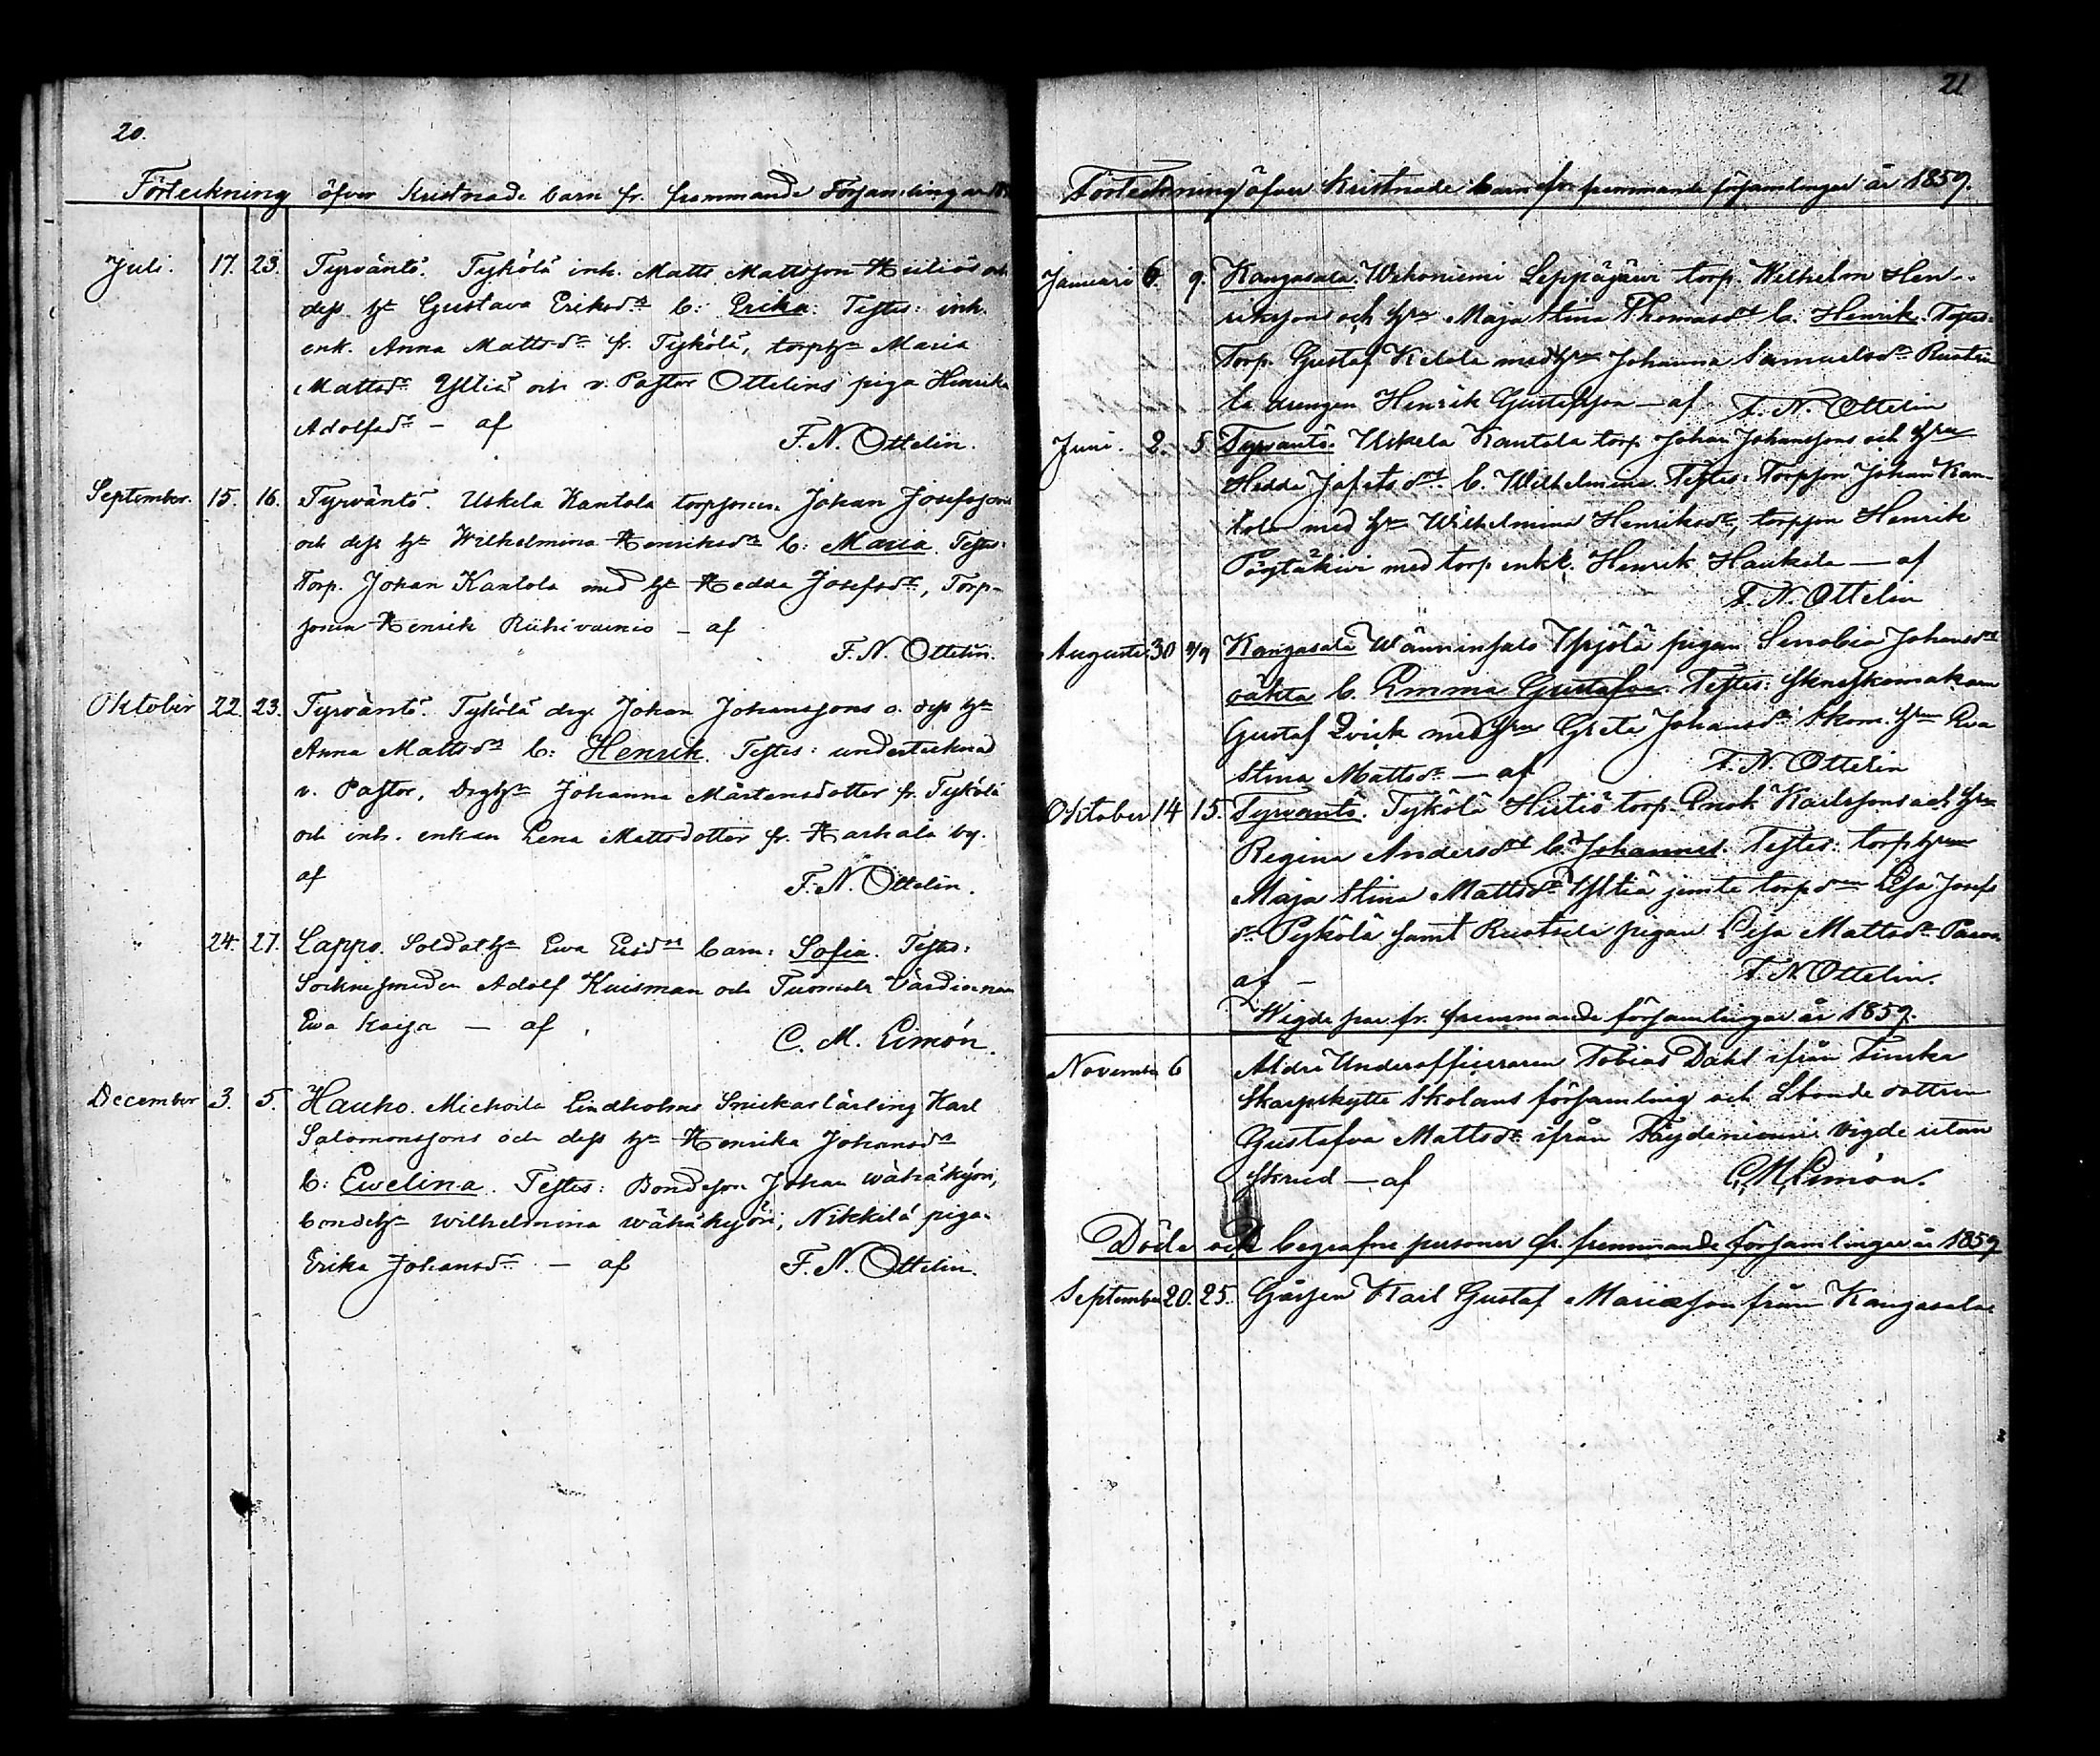 20.
Förteckning öfver Kristnade barn fr. frammande Församlingar
Juli. 17. 23. Tyrväntö. Tykölä inh. Matts Mattsson Hiiliös och
dess h:u Gustava Eriksd:r b: Erika: Testes: inh.
enk. Anna Mattsd:r fr. Tykölä, torph:u Maria
Mattsd:r Yllia och v. Pastor Ottelins piga Henrika
Adolfsd:r — af
F. N. Ottelin.
September. 15. 16. Tyrväntö. Uskela Kantola torpsonen Johan Josefssons
och dess h:u Wilhelmina Henriksd:r b: Maria. Testes:
Torp. Johan Kantola med h:u Hedda Josefsd:r, Torp-
sonen Henrik Riihivainio — af
F. N. Ottelin.
Oktober 22. 23. Tyrväntö. Tykölä drg. Johan Johanssons o. dess h:u
Anna Mattsd:r b: Henrik. Testes: undertecknad
v. Pastor, Drgh:u Johanna Mårtensdotter fr. Tykölä
och inh. enkan Lena Mattsdotter fr. Harhala by.
af
F. N. Ottelin.
" 24. 27. Lappo. Soldath:u Ewa Ersd:r barn: Sofia. Testes:
Socknesmeden Adolf Kuisman och Tuomola Värdinnan
Ewa Kaisa — af
C. M. Limón.
December 3. 5. Hauho. Michoila Lindholms Snickarlärling Karl
Salomonssons och dess h:u Henrika Johansd:r
b: Ewelina. Testes: Bondeson Johan Wähäkyöri,
bondeh:u Wilhelmina Wähäkyöri, Nikkilä piga
Erika Johansd:r — af
F. N. Ottelin.
21
Förteckning öfver Kristnade barn från fremmande församlingar år 1859.
Januari 6. 9. Kangasala. Wehoniemi Leppäjärvi torp. Wilhelm Hen-
riksson och h:u Maja Stina Thomasd:r b. Henrik. Testes:
Torp. Gustaf Ketola med h:u Johanna Samuelsd:r Ruotsi
la drengen Henrik Gustafsson — af F. N. Ottelin
Juni. 2. 5. Tyrväntö. Uskela Kantola torp Johan Johanssons och h:u
Hedda Jafetsd:r b. Wilhelmina Testes: Torpson Johan Kan-
tola med h:u Wilhelmina Henriksd:r, torpson Henrik
Pöytäkivi med torp enk. Henrik Haukola — af
F. N. Ottelin
Augusti 30 4/9 Kangasala Wänninsalo Yrjölä pigan Senobia Johansd:r
oäkta b. Emma Gustafva. Testes: Skneskomakaren
Gustaf Qvick med h:u Greta Johansd:r Skom. h:u Eva
Stina Mattsd:r — af F. N. Ottelin
Oktober 14 15. Tyrväntö. Tykölä Hiitiö torp. Enok Karlssons och h:u
Regina Andersd:r b. Johannes. Testes: torph:u
Maja Stina Mattsd:r Yllia jemte torp d:r Lisa Josefs
d:r Pyhölä samt Ruotsila pigan Lisa Mattsd:r
af — F. N. Ottelin.
Wigde par fr. fremmande församlingar år 1859.
November 6 Äldre Underofficeraren Tobias Dahl ifrån Finska
Skarpskytte Skolans församling och Lbonde dottren
Gustafva Mattsd:r ifrån Päydeniemi vigde utan
Skrud — af C. M. Limón.
Döde och begrafne personer fr. fremmande församlingar år 1859
September 20. 25. Gåssen Karl Gustaf Mariæson från Kangasala